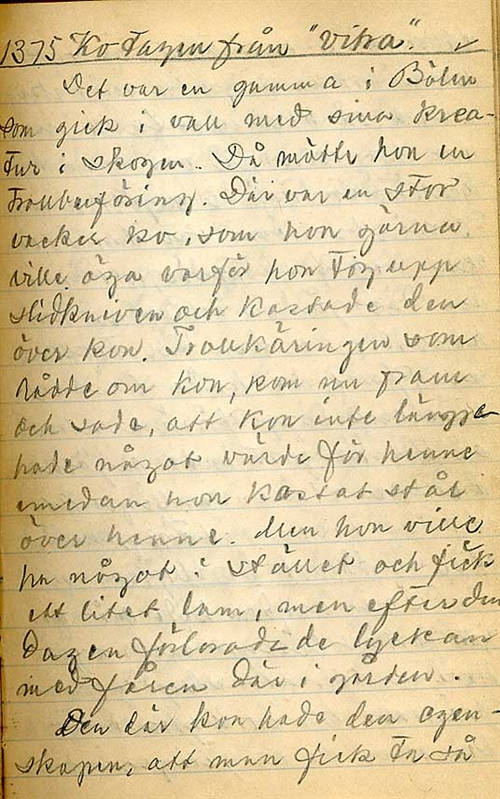 1375 Ko tagen från "vitra".
Det var en gumma i Bölen
som gick i vall med sina krea-
tur i skogen. Då mötte hon en
trollbuföring. Där var en stor
vacker ko, som hon gärna
ville äga varför hon tog upp
slidkniven och kastade den
över kon. Trollkäringen som
rådde om kon, kom nu fram
och sade, att kon inte längre
hade något värde för henne
emedan hon kastat stål
över henne. Men hon ville
ha något i stället och fick
ett litet lam, men efter den
dagen förlorade de lyckan
med fåren där i gården.
Den där kon hade den egen-
skapen, att man fick ta så